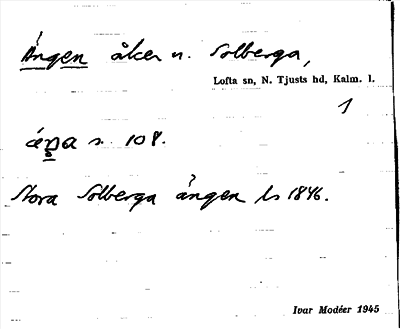 Ången åker n. Solberga,
Lofta sn, N. Tjusts hd, Kalm. l.
1
s. 108.
Stora Solberga ången ls 1846.
Ivar Modéer 1945